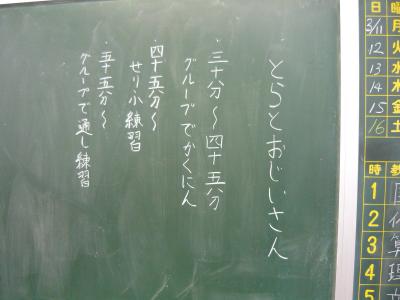 ・とらとおじいさん
・三十分～四十五分
グループでかくにん
・四十五分～
せりふ練習
・五十五分～
グループで通し練習
日 曜
3/11 月
12 火
13 水
14 木
15 金
16 土
時 教
1 国
2
3 算
4 理
5